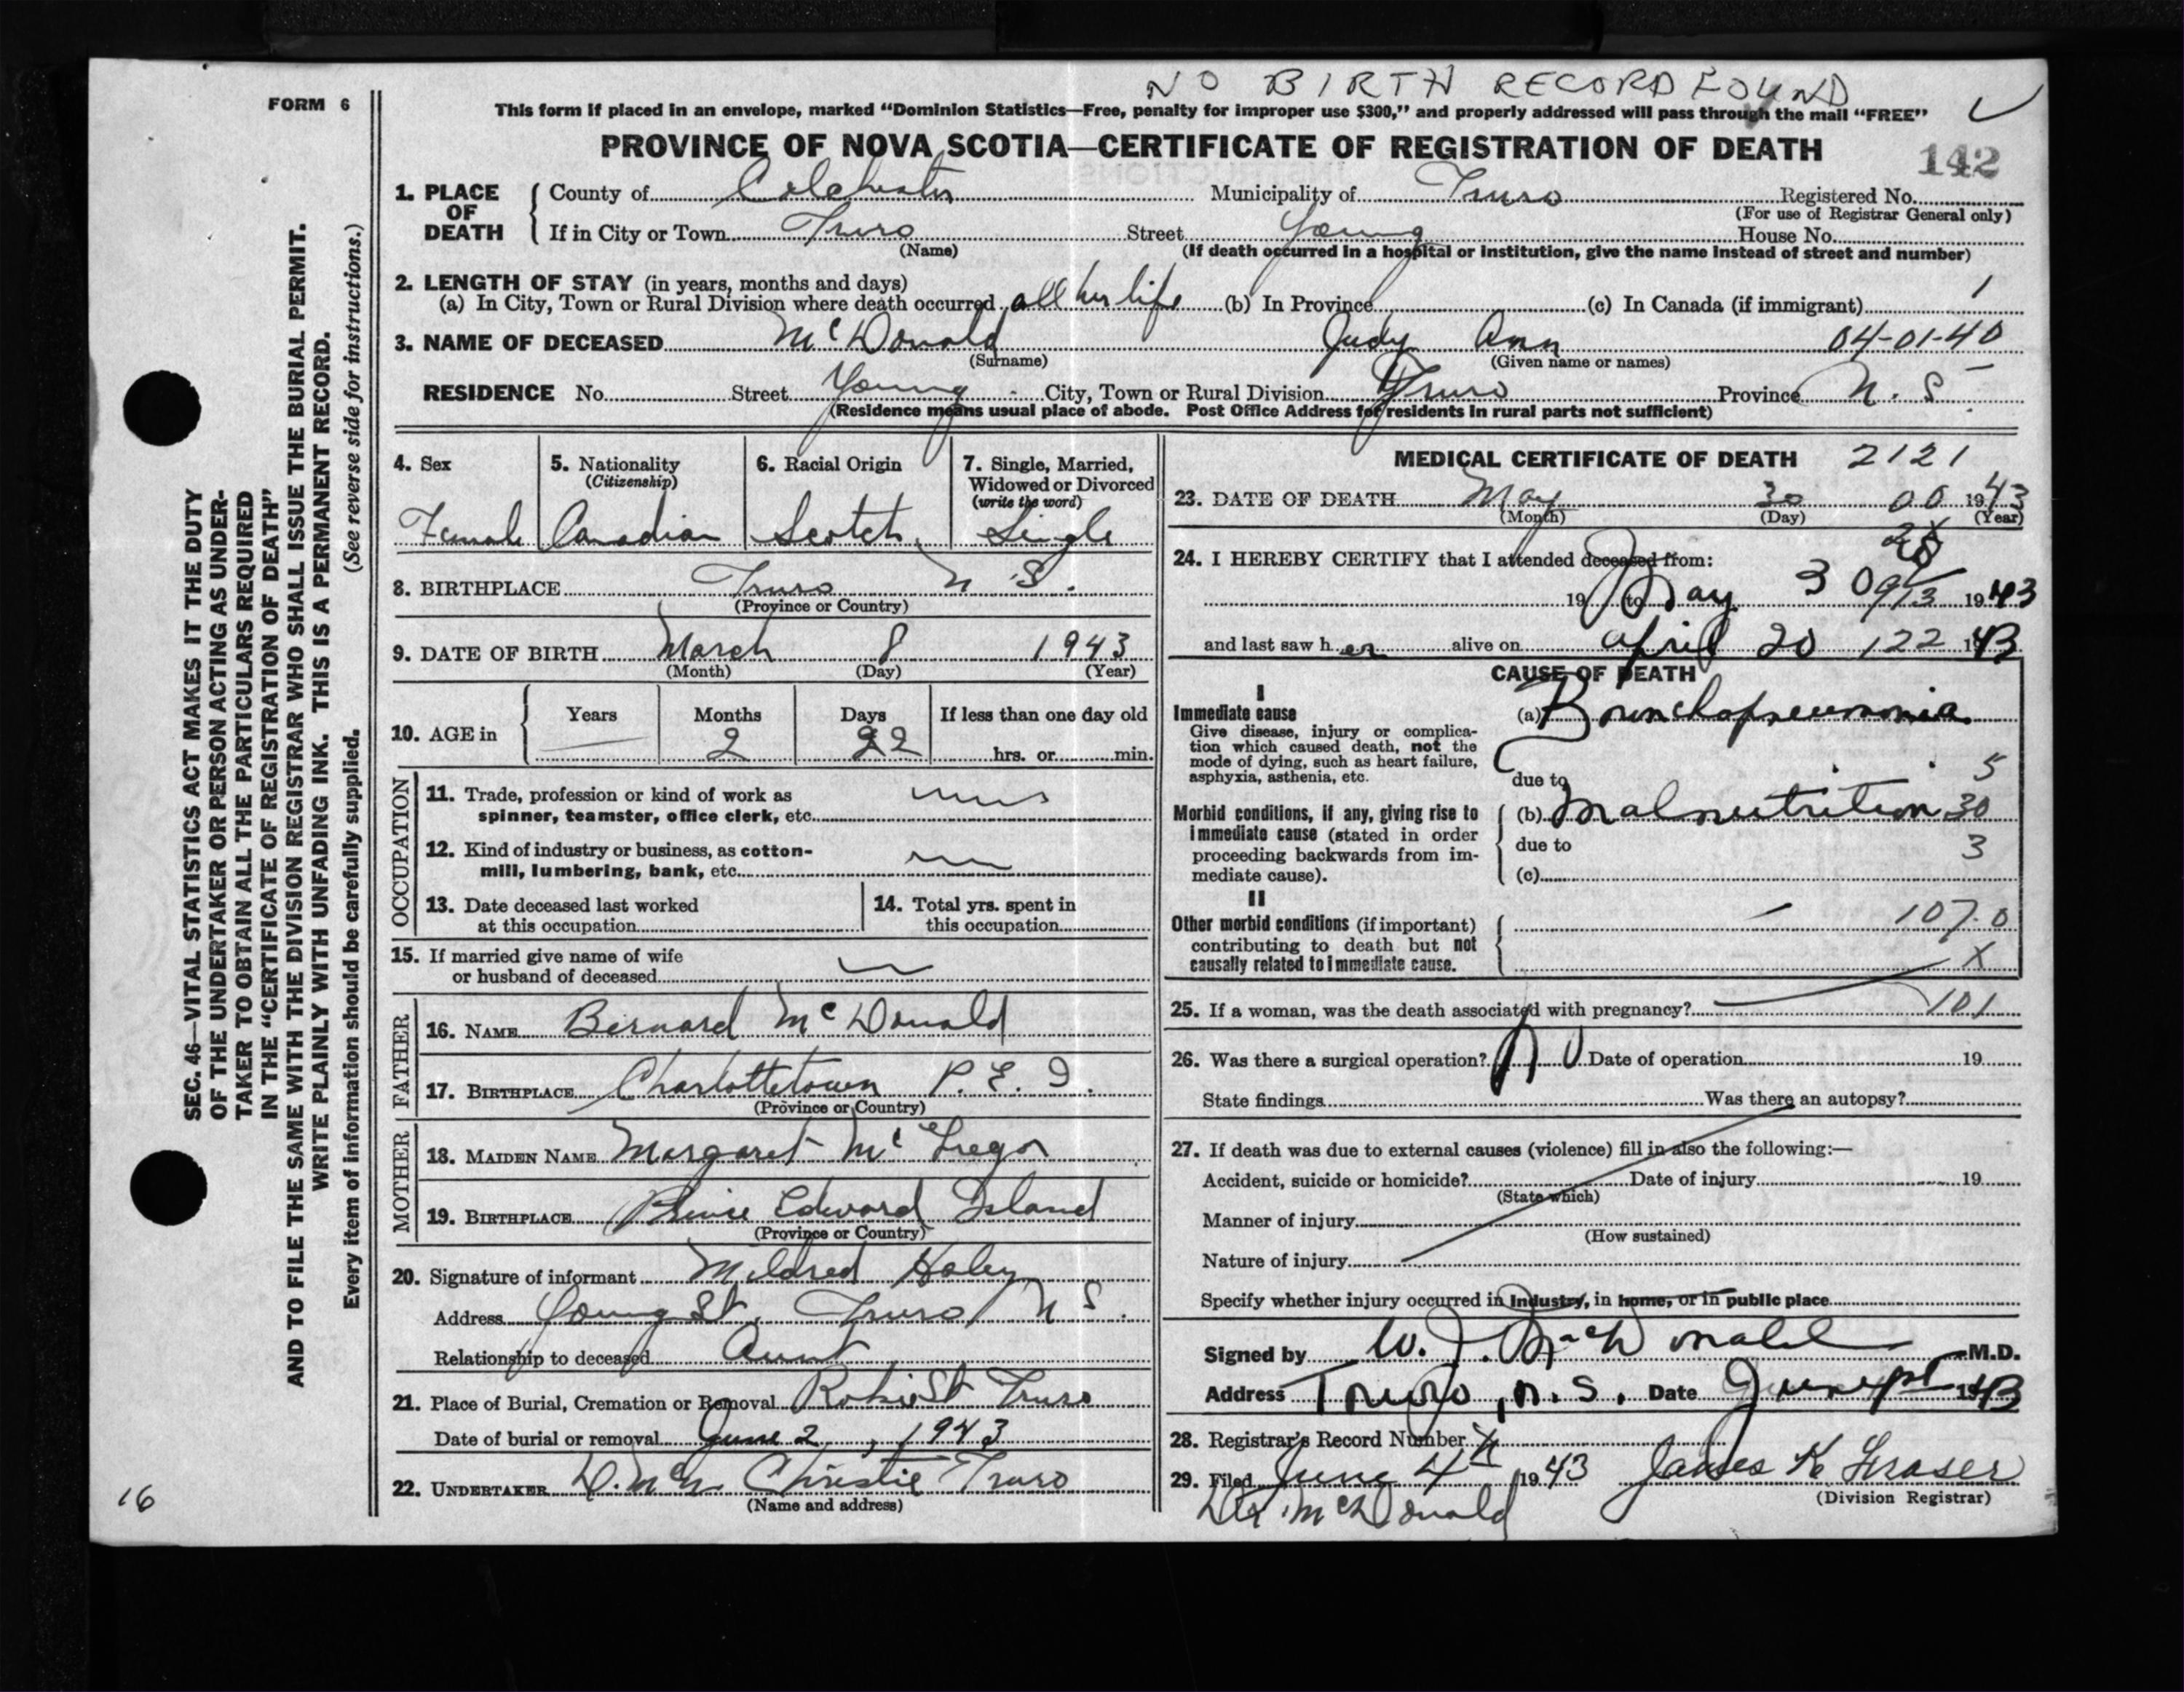 NO BIRTH RECORD FOUND
FORM 6
This form if placed in an envelope, marked “Dominion Statistics—Free, penalty for improper use $300,” and properly addressed will pass through the mail “FREE”
PROVINCE OF NOVA SCOTIA—CERTIFICATE OF REGISTRATION OF DEATH
142
1. PLACE OF DEATH
County of Colchester Municipality of Truro Registered No.
(For use of Registrar General only)
If in City or Town Truro Street Young House No.
(Name) (If death occurred in a hospital or institution, give the name instead of street and number)
2. LENGTH OF STAY (in years, months and days)
(a) In City, Town or Rural Division where death occurred all her life (b) In Province (c) In Canada (if immigrant) 1
3. NAME OF DECEASED McDonald Judy Ann 04-01-40
(Surname) (Given name or names)
RESIDENCE No. Street Young City, Town or Rural Division Truro Province N. S.
(Residence means usual place of abode. Post Office Address for residents in rural parts not sufficient)
4. Sex
Female
5. Nationality
(Citizenship)
Canadian
6. Racial Origin
Scotch
7. Single, Married,
Widowed or Divorced
(write the word)
Single
8. BIRTHPLACE Truro N. S.
(Province or Country)
9. DATE OF BIRTH March 8 1943
(Month) (Day) (Year)
10. AGE in
Years Months Days If less than one day old
2 22 hrs. or min.
OCCUPATION
11. Trade, profession or kind of work as
spinner, teamster, office clerk, etc.
12. Kind of industry or business, as cotton-
mill, lumbering, bank, etc.
13. Date deceased last worked
at this occupation
14. Total yrs. spent in
this occupation
15. If married give name of wife
or husband of deceased
FATHER
16. NAME Bernard McDonald
17. BIRTHPLACE Charlottetown P. E. I.
(Province or Country)
MOTHER
18. MAIDEN NAME Margaret McGregor
19. BIRTHPLACE Prince Edward Island
(Province or Country)
20. Signature of informant Mildred Haley
Address Young St. Truro N S.
Relationship to deceased Aunt
21. Place of Burial, Cremation or Removal Robie St Truro
Date of burial or removal June 2, 1943
22. UNDERTAKER Christie Truro
(Name and address)
MEDICAL CERTIFICATE OF DEATH 2121
23. DATE OF DEATH May 30 00 1943
(Month) (Day) (Year)
24. I HEREBY CERTIFY that I attended deceased from:
19 to May 30 1943
and last saw her alive on April 20 122 1943
CAUSE OF DEATH
I
Immediate cause
Give disease, injury or complica-
tion which caused death, not the
mode of dying, such as heart failure,
asphyxia, asthenia, etc.
(a) Bronchopneumonia
due to 5
Morbid conditions, if any, giving rise to
immediate cause (stated in order
proceeding backwards from im-
mediate cause).
(b) Malnutrition 30
due to 3
(c)
II
Other morbid conditions (if important)
contributing to death but not
causally related to immediate cause.
107.0
X
25. If a woman, was the death associated with pregnancy? 101
26. Was there a surgical operation? NO Date of operation 19
State findings Was there an autopsy?
27. If death was due to external causes (violence) fill in also the following:—
Accident, suicide or homicide? Date of injury 19
(State which)
Manner of injury
(How sustained)
Nature of injury
Specify whether injury occurred in Industry, in home, or in public place
Signed by W. J. MacDonald M.D.
Address Truro, N. S. Date June 1943
28. Registrar's Record Number
29. Filed June 4th 1943 James K Fraser
(Division Registrar)
Dr. McDonald
SEC. 46—VITAL STATISTICS ACT MAKES IT THE DUTY
OF THE UNDERTAKER OR PERSON ACTING AS UNDER-
TAKER TO OBTAIN ALL THE PARTICULARS REQUIRED
IN THE “CERTIFICATE OF REGISTRATION OF DEATH”
AND TO FILE THE SAME WITH THE DIVISION REGISTRAR WHO SHALL ISSUE THE BURIAL PERMIT.
WRITE PLAINLY WITH UNFADING INK. THIS IS A PERMANENT RECORD.
Every item of information should be carefully supplied. (See reverse side for instructions.)
16